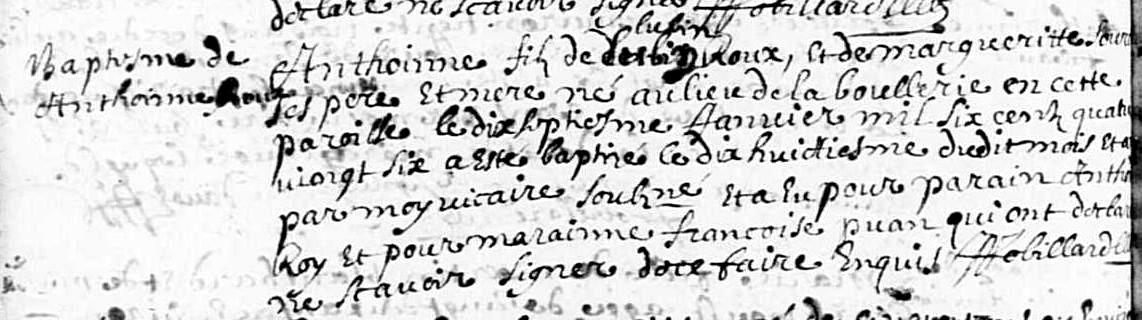 declare ne scavoir signer
Baptesme de
Anthoinne Roux
Anthoinne fils de Roux, et de margueritte
ses pere et mere né au lieu de la boullerie en cette
paroisse le dix septiesme Janvier mil six cents quatre
vingt six a esté baptisé le dix huictiesme dudit mois et an
par moy vicaire soubzné et a eu pour parain Antho
Roy et pour marainne francoise puan qui ont declar
ne scavoir signer de ce faire enquis FRobillard